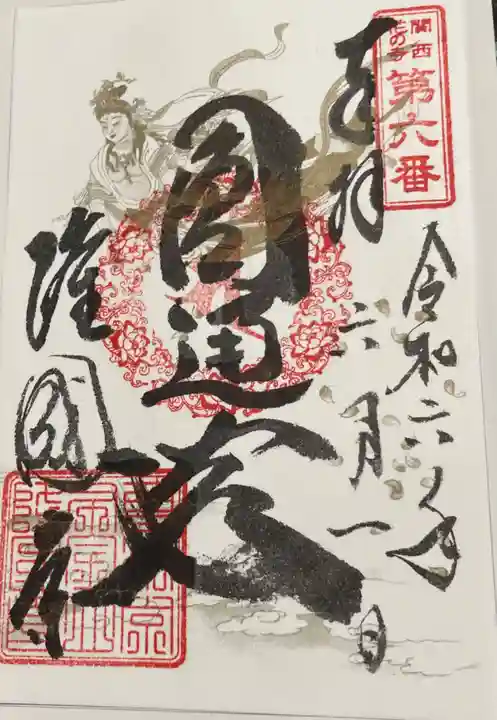 関西
花の寺
第六番
奉拝
令和六年
六月一日
圓通
隆國寺